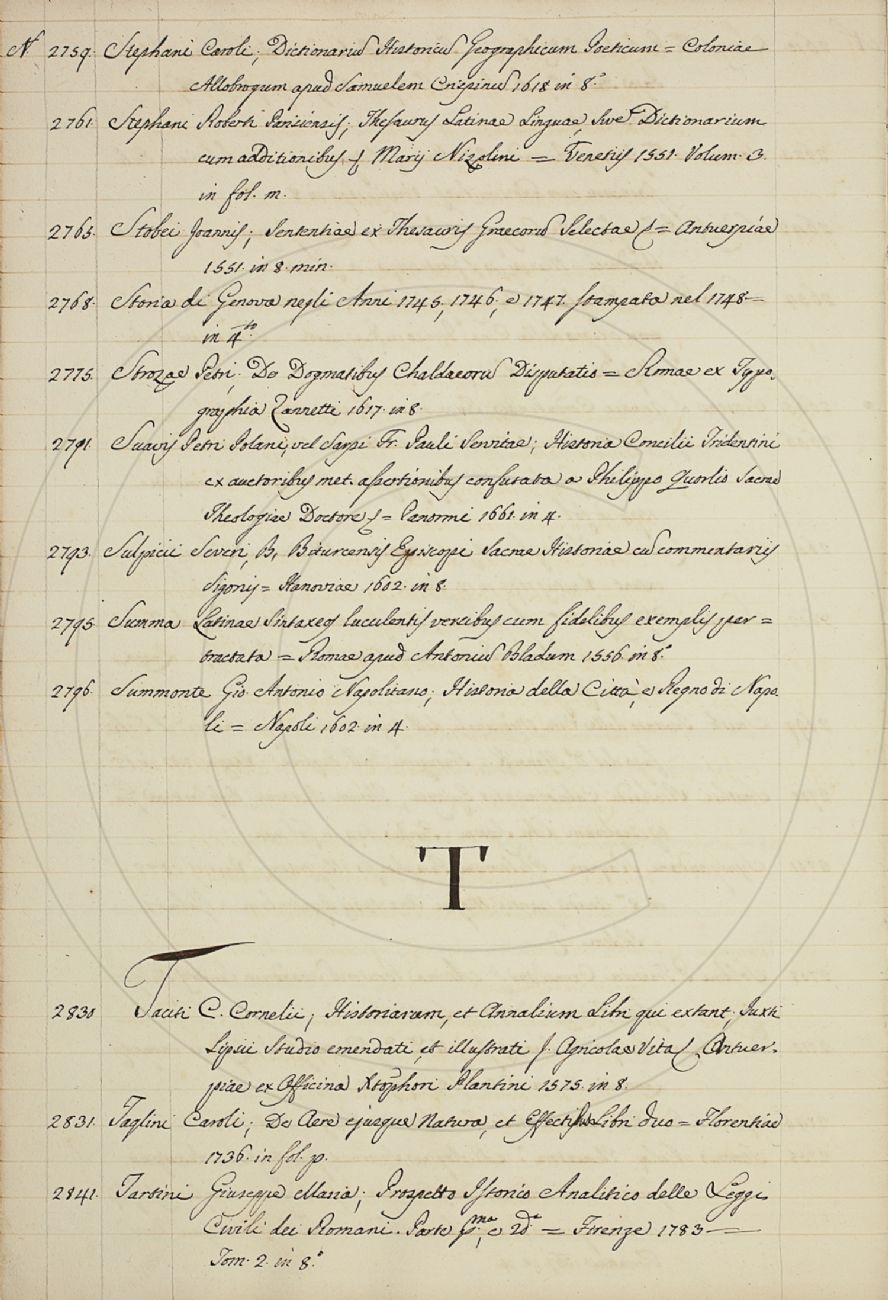 N. 2759. Stephani Caroli; Dictionariũ Historicũ Geographicum Poeticum = Coloniae
Allobrogum apud Samuelem Crispinũ 1618 in 8.º
2761. Stephani Roberti Parisiensis; Thesaurus Latinae Linguae, sive Dictionarium
cum additionibus Marij Nizolini = Venetiis 1551. Volum. 3.
in fol. m.
2765. Stobei Joannis; Sententiae ex Thesauris Graecorũ Selectae = Antuerpiae
1551. in 8. min.
2768. Storia di Genova negli Anni 1745, 1746, e 1747. stampata nel 1748 —
in 4.to
2775. Strozae Petri; De Dogmatibus Chaldaeorũ Disputatio = Romae ex Typo.
graphia Zannetti 1617. in 8.
2791. Suavis Petri Polani, vel Sarpi Fr. Pauli Servitae; Historia Concilii Tridentini
ex auctoribus met. assertionibus confutata a Philippo Quorlio Sacrae
Theologiae Doctore = Panormi 1661. in 4.
2793. Sulpicii Severi, B. Biturcensis Episcopi Sacrae Historiae cũ commentariis
Sigonis = Hanoviae 1602. in 8.
2795. Summa Latinae Sintaxeos luculentis versibus cum fidelibus exemplis per =
tractata = Romae apud Antoniũ Bladum 1556. in 8.º
2796. Summonte Gio. Antonio Napolitano; Historia della Città, e Regno di Napo.
li = Napoli 1602. in 4.
T
2830 Taciti C. Cornelii; Historiarum, et Annalium Libri qui extant, Justi
Lipsii Studio emendati, et illustrati J. Agricolae Vita Antuer.
piae ex Officina Xtophori Plantini 1575. in 8.
2831. Taglini Caroli; De Aere ejusque Natura, et Effectibus Libri duo = Florentiae
1736. in fol. p.
2841. Tartini Giuseppe Maria; Prospetto Istorico Analitico delle Leggi
Civili dei Romani. Parte p.ma, e 2d.a = Firenze 1783 —
Tom. 2. in 8.º